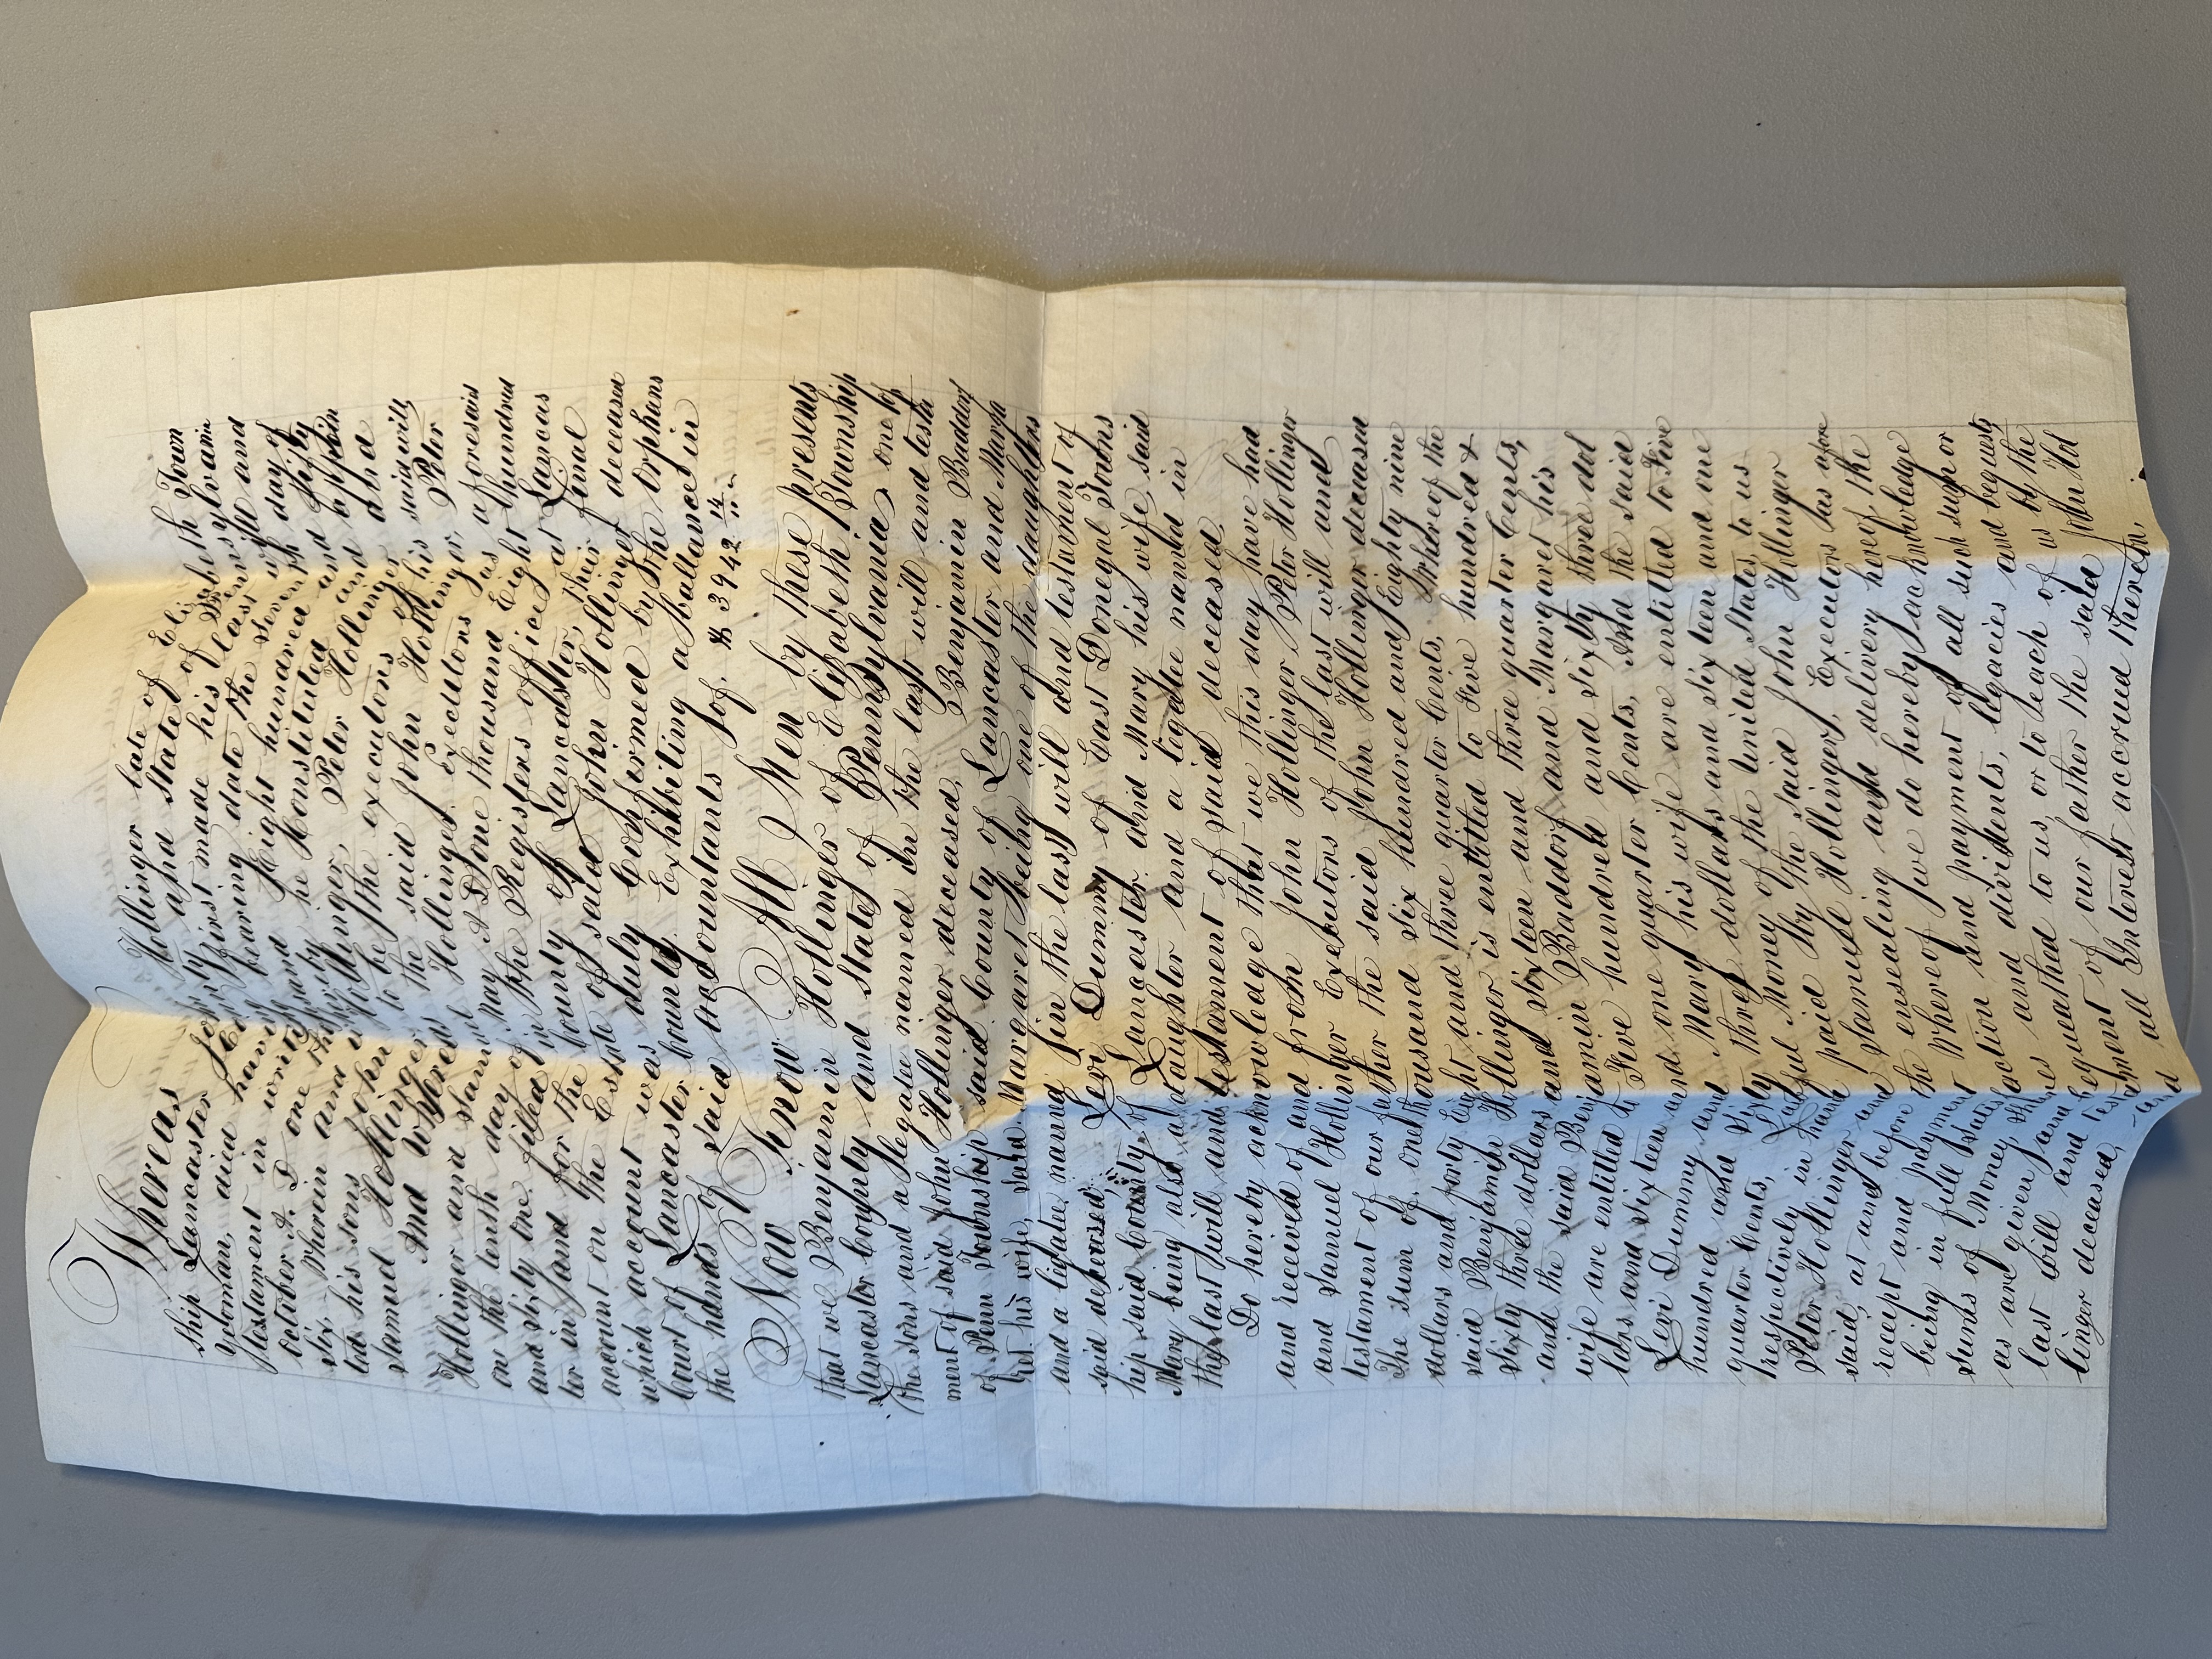 Whereas John Hollinger late of Elizabeth Town
ship Lancaster County and State of Pennsylvania
yeoman, did having first made his last will and
testament in writing bearing date the seventh day of
October A. D. one thousand Eight hundred and fifty
six. Wherein and thereby he Constituted and appoin
ted his sons John Hollinger, Peter Hollinger and
Samuel Hollinger to be the executors of his said will,
And Whereas the said John Hollinger, Peter
Hollinger and Samuel Hollinger Executors as aforesaid
on the tenth day of May A. D. one thousand Eight hundred
and sixty one filed in the Registers office at Lancas
ter in and for the County of Lancaster, their final
account on the Estate of said John Hollinger deceased
which account was duly Confirmed by the Orphans
Court of Lancaster County Exhibiting a ballance in
the hands of said accountants of. $ 3942
Now Know All Men by these presents
that we Benjamin Hollinger of Elizabeth Township
Lancaster County and State of Pennsylvania, one of
the sons and a legatee named in the last will and testa
ment of said John Hollinger deceased. Benjamin Baddorf
of Penn Township said County of Lancaster and Marga
ret his wife, said Margaret being one of the daughters
and a ligatee named in the last will and testament of
said deceased, Levi Dummy of East Donegal Towns
hip said County of Lancaster and Mary his wife, said
Mary being also a daughter and a ligatee named in
the last will and testament of said deceased.
Do hereby acknowledge that we this day have had
and received of and from John Hollinger Peter Hollinger
and Samuel Hollinger Executors of the last will and
testament of our father the said John Hollinger deceased
The sum of one thousand six hundred and Eighty nine
dollars and forty Eight and three quarter Cents, Whereof the
said Benjamin Hollinger is entitled to Five hundred &
sixty three dollars and sixteen and three quarter Cents,
and the said Benjamin Baddorf and Margaret his
wife are entitled to Five hundred and sixty three dol
lars and sixteen and one quarter Cents, And the said
Levi Dummy and Mary his wife are entitled to Five
hundred and sixty three dollars and sixteen and one
quarter Cents, Lawful Money of the United States, to us
respectively in hand paid by the said John Hollinger
Peter Hollinger and Samuel Hollinger, Executors as afore
said, at and before the ensealing and delivery hereof, the
recept and payment Whereof we do hereby acknowledge
being in full satisfaction and payment of all such sum or
sums of Money, shares and dividents, legacies and bequests
as are given and bequeathed to us, or to each of us by the
last Will and testament of our father the said John Hol
linger deceased, and all Interest accrued therein,